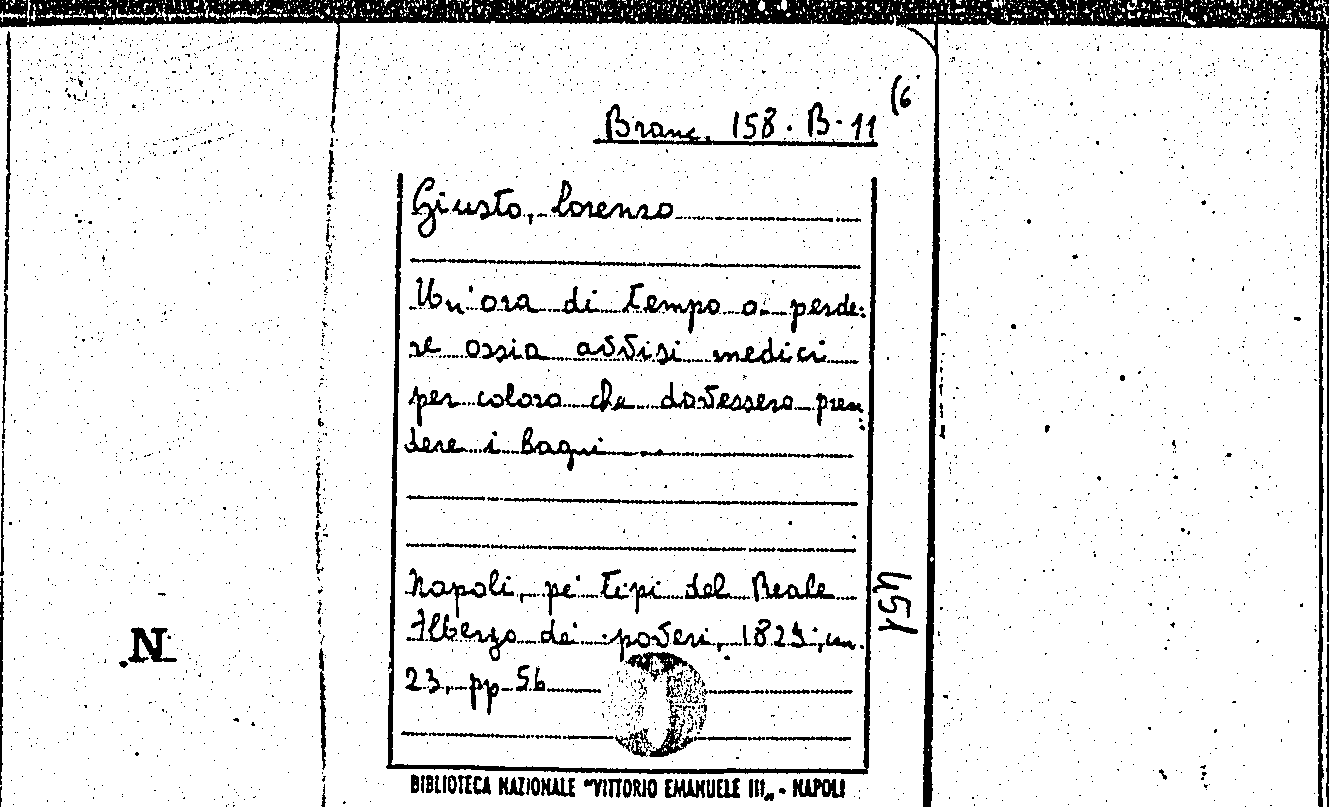 (6
Branc. 158. B-11
Giusto, Lorenzo
Un'ora di tempo a perde=
re ossia avvisi medici
per coloro che dovessero pren
dere i bagni
Napoli, pe' tipi del Reale
Albergo dei poveri, 1823, cm.
23, pp 56
451
N
BIBLIOTECA NAZIONALE "VITTORIO EMANUELE III„ - NAPOLI